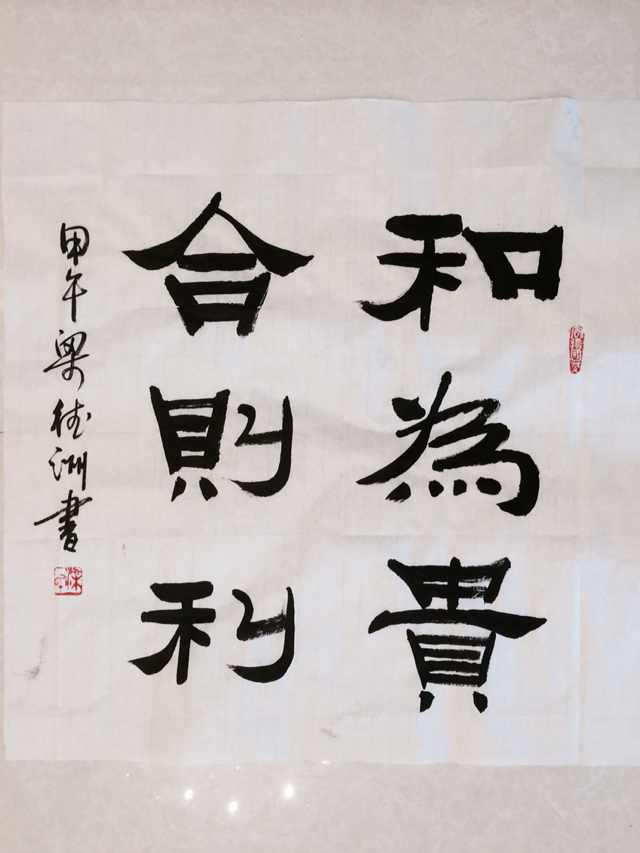 和為貴
合則利
甲午梁德洲書